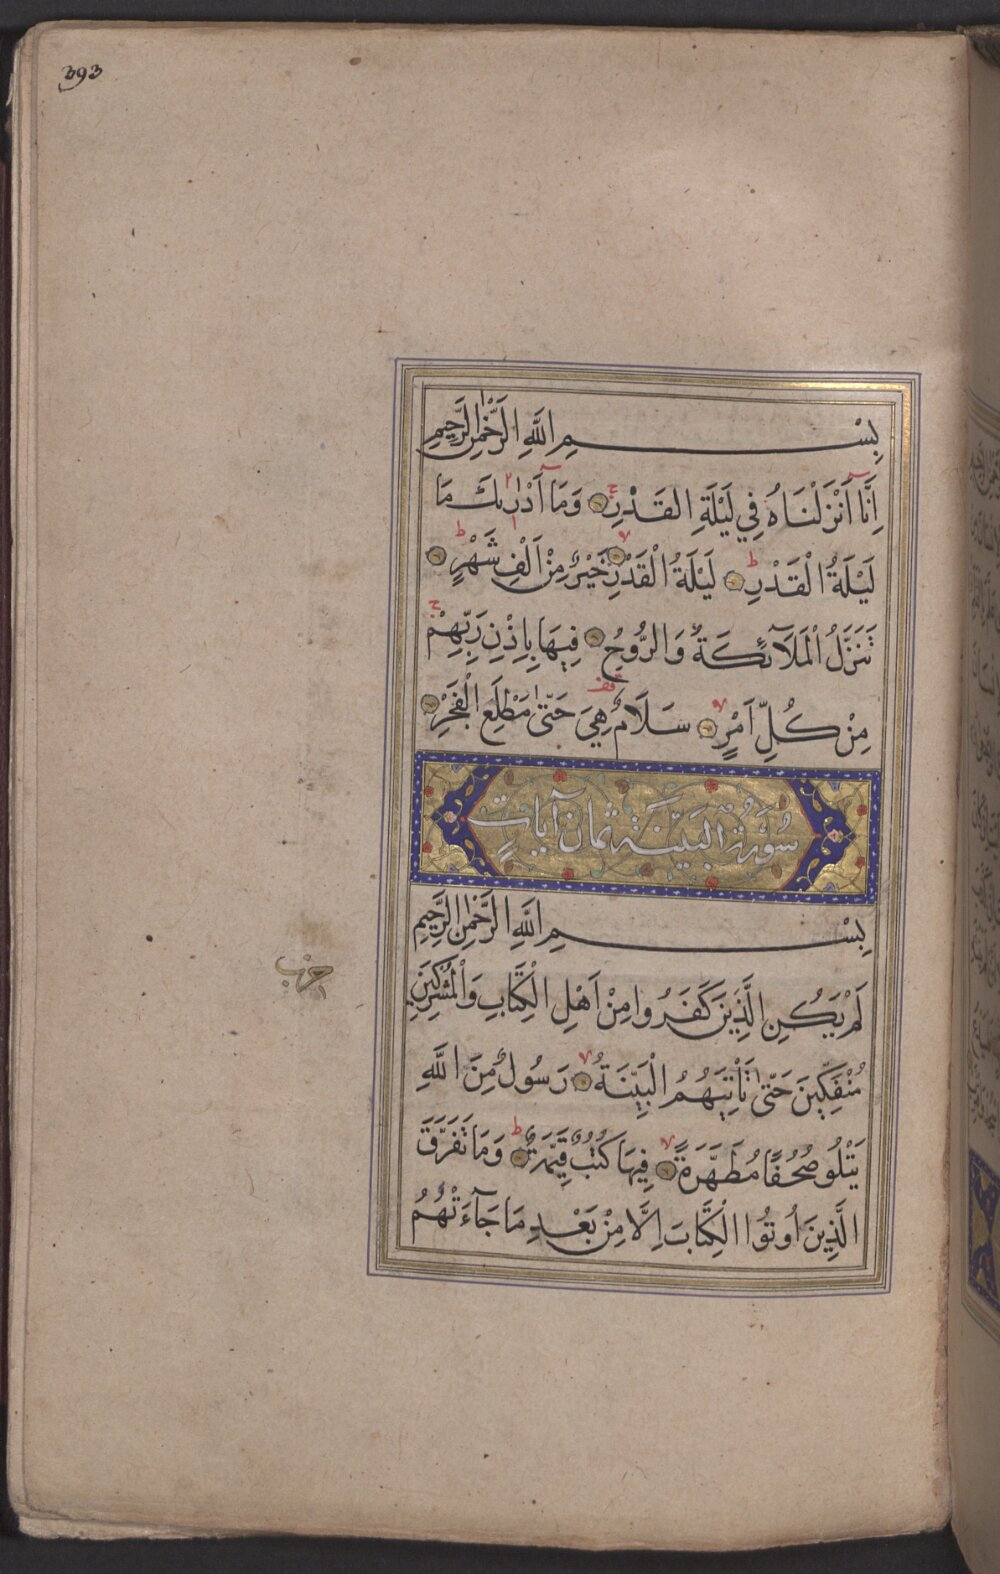 393
بِسْمِ اللَّهِ الرَّحْمٰنِ الرَّحِيمِ
اِنَّٓا اَنْزَلْنَاهُ فِي لَيْلَةِ الْقَدْرِ ج وَمَٓا اَدْرٰيكَ مَا
لَيْلَةُ الْقَدْرِ ط لَيْلَةُ الْقَدْرِ لا خَيْرٌ مِنْ اَلْفِ شَهْرٍ ط
تَنَزَّلُ الْمَلَآئِكَةُ وَالرُّوحُ فِيهَا بِاِذْنِ رَبِّهِمْ ج
مِنْ كُلِّ اَمْرٍ لا سَلَامٌ قف هِيَ حَتّٰى مَطْلَعِ الْفَجْرِ
سُورَةُ الْبَيِّنَة ثمان آيَات
بِسْمِ اللَّهِ الرَّحْمٰنِ الرَّحِيمِ
لَمْ يَكُنِ الَّذِينَ كَفَرُوا مِنْ اَهْلِ الْكِتَابِ وَالْمُشْرِكِينَ
حزب
مُنْفَكِّينَ حَتّٰى تَأْتِيَهُمُ الْبَيِّنَةُ لا رَسُولٌ مِنَ اللَّهِ
يَتْلُو صُحُفًا مُطَهَّرَةً لا فِيهَا كُتُبٌ قَيِّمَةٌ ط وَمَا تَفَرَّقَ
الَّذِينَ اُوتُوا الْكِتَابَ اِلَّا مِنْ بَعْدِ مَا جَآءَتْهُمُ